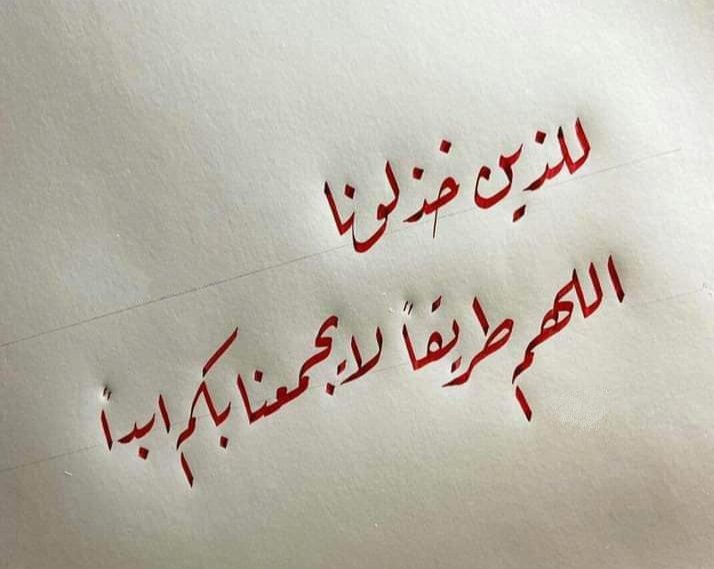 للذين خذلونا
اللهم طريقاً لا يجمعنا بكم ابداً